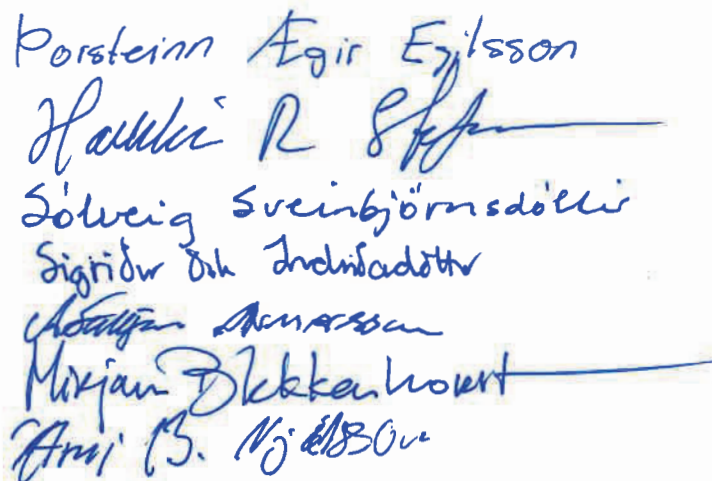 Þorsteinn Ægir Egilsson
Haukur R
Sólveig Sveinbjörnsdóttir
Sigríður Ósk Indriðadóttir
Mirjam Blekkenhorst
Árni B. Njálsson